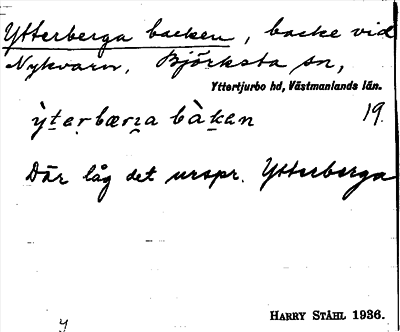 Ytterberga backen, backe vid
Nykvarn, Björksta sn,
Yttertjurbo hd, Västmanlands län.
ỳt̲er̲bær̲a bàk̲en 19.
Där låg det urspr. Ytterberga
HARRY STÅHL 1936.
y